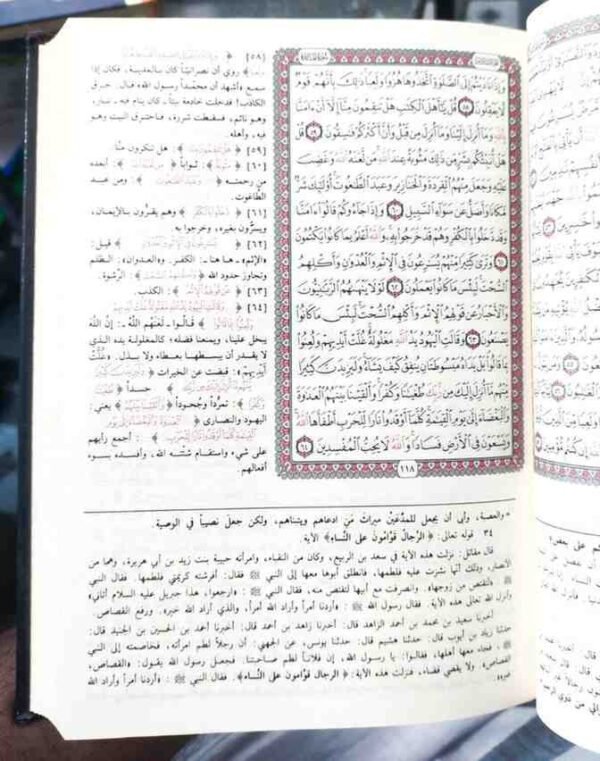 وَإِذَا نَادَيْتُمْ إِلَى الصَّلَوٰةِ اتَّخَذُوهَا هُزُوًا وَلَعِبًا ذَٰلِكَ بِأَنَّهُمْ قَوْمٌ
لَّا يَعْقِلُونَ ٥٨ قُلْ يَـٰٓأَهْلَ الْكِتَـٰبِ هَلْ تَنقِمُونَ مِنَّآ إِلَّآ أَنْ ءَامَنَّا
بِاللَّهِ وَمَآ أُنزِلَ إِلَيْنَا وَمَآ أُنزِلَ مِن قَبْلُ وَأَنَّ أَكْثَرَكُمْ فَـٰسِقُونَ ٥٩ قُلْ
هَلْ أُنَبِّئُكُم بِشَرٍّ مِّن ذَٰلِكَ مَثُوبَةً عِندَ اللَّهِ مَن لَّعَنَهُ اللَّهُ وَغَضِبَ
عَلَيْهِ وَجَعَلَ مِنْهُمُ الْقِرَدَةَ وَالْخَنَازِيرَ وَعَبَدَ الطَّـٰغُوتَ أُو۟لَـٰٓئِكَ شَرٌّ
مَّكَانًا وَأَضَلُّ عَن سَوَآءِ السَّبِيلِ ٦٠ وَإِذَا جَآءُوكُمْ قَالُوٓا ءَامَنَّا
وَقَد دَّخَلُوا بِالْكُفْرِ وَهُمْ قَدْ خَرَجُوا بِهِ وَاللَّهُ أَعْلَمُ بِمَا كَانُوا يَكْتُمُونَ
٦١ وَتَرَىٰ كَثِيرًا مِّنْهُمْ يُسَـٰرِعُونَ فِى الْإِثْمِ وَالْعُدْوَٰنِ وَأَكْلِهِمُ
السُّحْتَ لَبِئْسَ مَا كَانُوا يَعْمَلُونَ ٦٢ لَوْلَا يَنْهَىٰهُمُ الرَّبَّـٰنِيُّونَ
وَالْأَحْبَارُ عَن قَوْلِهِمُ الْإِثْمَ وَأَكْلِهِمُ السُّحْتَ لَبِئْسَ مَا كَانُوا
يَصْنَعُونَ ٦٣ وَقَالَتِ الْيَهُودُ يَدُ اللَّهِ مَغْلُولَةٌ غُلَّتْ أَيْدِيهِمْ وَلُعِنُوا
بِمَا قَالُوا بَلْ يَدَاهُ مَبْسُوطَتَانِ يُنفِقُ كَيْفَ يَشَآءُ وَلَيَزِيدَنَّ كَثِيرًا
مِّنْهُم مَّآ أُنزِلَ إِلَيْكَ مِن رَّبِّكَ طُغْيَـٰنًا وَكُفْرًا وَأَلْقَيْنَا بَيْنَهُمُ الْعَدَٰوَةَ
وَالْبَغْضَآءَ إِلَىٰ يَوْمِ الْقِيَـٰمَةِ كُلَّمَآ أَوْقَدُوا نَارًا لِّلْحَرْبِ أَطْفَأَهَا اللَّهُ
وَيَسْعَوْنَ فِى الْأَرْضِ فَسَادًا وَاللَّهُ لَا يُحِبُّ الْمُفْسِدِينَ ٦٤
١١٨
[٥٨]
روي أن نصرانيًا كان بالمدينة، فكان إذا
سمع: وأشهد أن محمدًا رسول الله، قال: حرق
الكاذب! فدخلت خادمة بيتًا كان ينام فيه، بنار،
وهو نائم، فسقطت شررة، فاحترق البيت وهو
فيه، وأهله
[٥٩] هل تنكرون منّا
[٦٠] ثوابًا أبعده
من رحمته ومن عبد
الطاغوت.
[٦١] وهم يقرّون بالإيمان،
ويسرّون بغيره، وخرجوا به.
[٦٢] قيل:
«الإثم» ـ هـا هنـا ـ الكفر. «والعدوان»: الظلم
وتجاوز حدود الله الرشوة.
[٦٣] الكذب.
[٦٤] وَقَالَتِ الْيَهُودُ يَدُ اللَّهِ مَغْلُولَةٌ غُلَّتْ أَيْدِيهِمْ
قالوا ـ لعنهم الله ـ: إن الله
يبخل علينا، ويمنعنا فضله؛ كالمغلولة يده الذي
لا يقدر أن يبسطها بعطاء ولا بذل. غُلَّتْ
أَيْدِيهِمْ: قبضت عن الخيرات
حسدًا
تمرّدًا وجُحودًا يعني:
اليهود والنصارى
كُلَّمَا أَوْقَدُوا نَارًا لِّلْحَرْبِ: أجمع رأيهم
على شيء واستقام شتّته الله، وأفسده بسوء
أفعالهم.
= والعصبة، وأبى أن يجعل للمدَّعَيْن ميراث مَن ادعاهم ويتبناهم، ولكن جعل نصيباً في الوصية.
٣٤ قوله تعالى: ﴿الرِّجالُ قَوَّامُونَ على النِّساءِ﴾ الآية.
قال مقاتل: نزلت هذه الآية في سعد بن الربيع، وكان من النقباء، وامرأته حبيبة بنت زيد بن أبي هريرة، وهما من
الأنصار، وذلك أنها نشزت عليه فلطمها، فانطلق أبوها معها إلى النبي ﷺ فقال: أفرشته كريمتي فلطمها. فقال النبي
ﷺ «لتقتص من زوجها». وانصرفت مع أبيها لتقتص منه، فقال النبي ﷺ: «ارجعوا، هذا جبريل عليه السلام أتاني»
وأنزل الله تعالى هذه الآية. فقال رسول الله ﷺ: «أردنا أمراً وأراد الله أمراً، والذي أراد الله خير». ورفع القصاص.
أخبرنا سعيد بن محمد بن أحمد الزاهد قال: أخبرنا زاهد بن أحمد قال: أخبرنا أحمد بن الحسين بن الجنيد قال:
حدثنا زياد بن أيوب قال: حدثنا هشيم قال: حدثنا يونس، عن الحسن: أن رجلاً لطم امرأته، فخاصمته إلى النبي
ﷺ، فجاء معها أهلها، فقالوا: يا رسول الله، إن فلاناً لطم صاحبتنا. فجعل رسول الله يقول: «القصاص،
القصاص». ولا يقضي قضاء، فنزلت هذه الآية: ﴿الرجال قوّامون على النِّساء﴾. فقال النبي ﷺ: «أردنا أمراً وأراد الله
غيره».